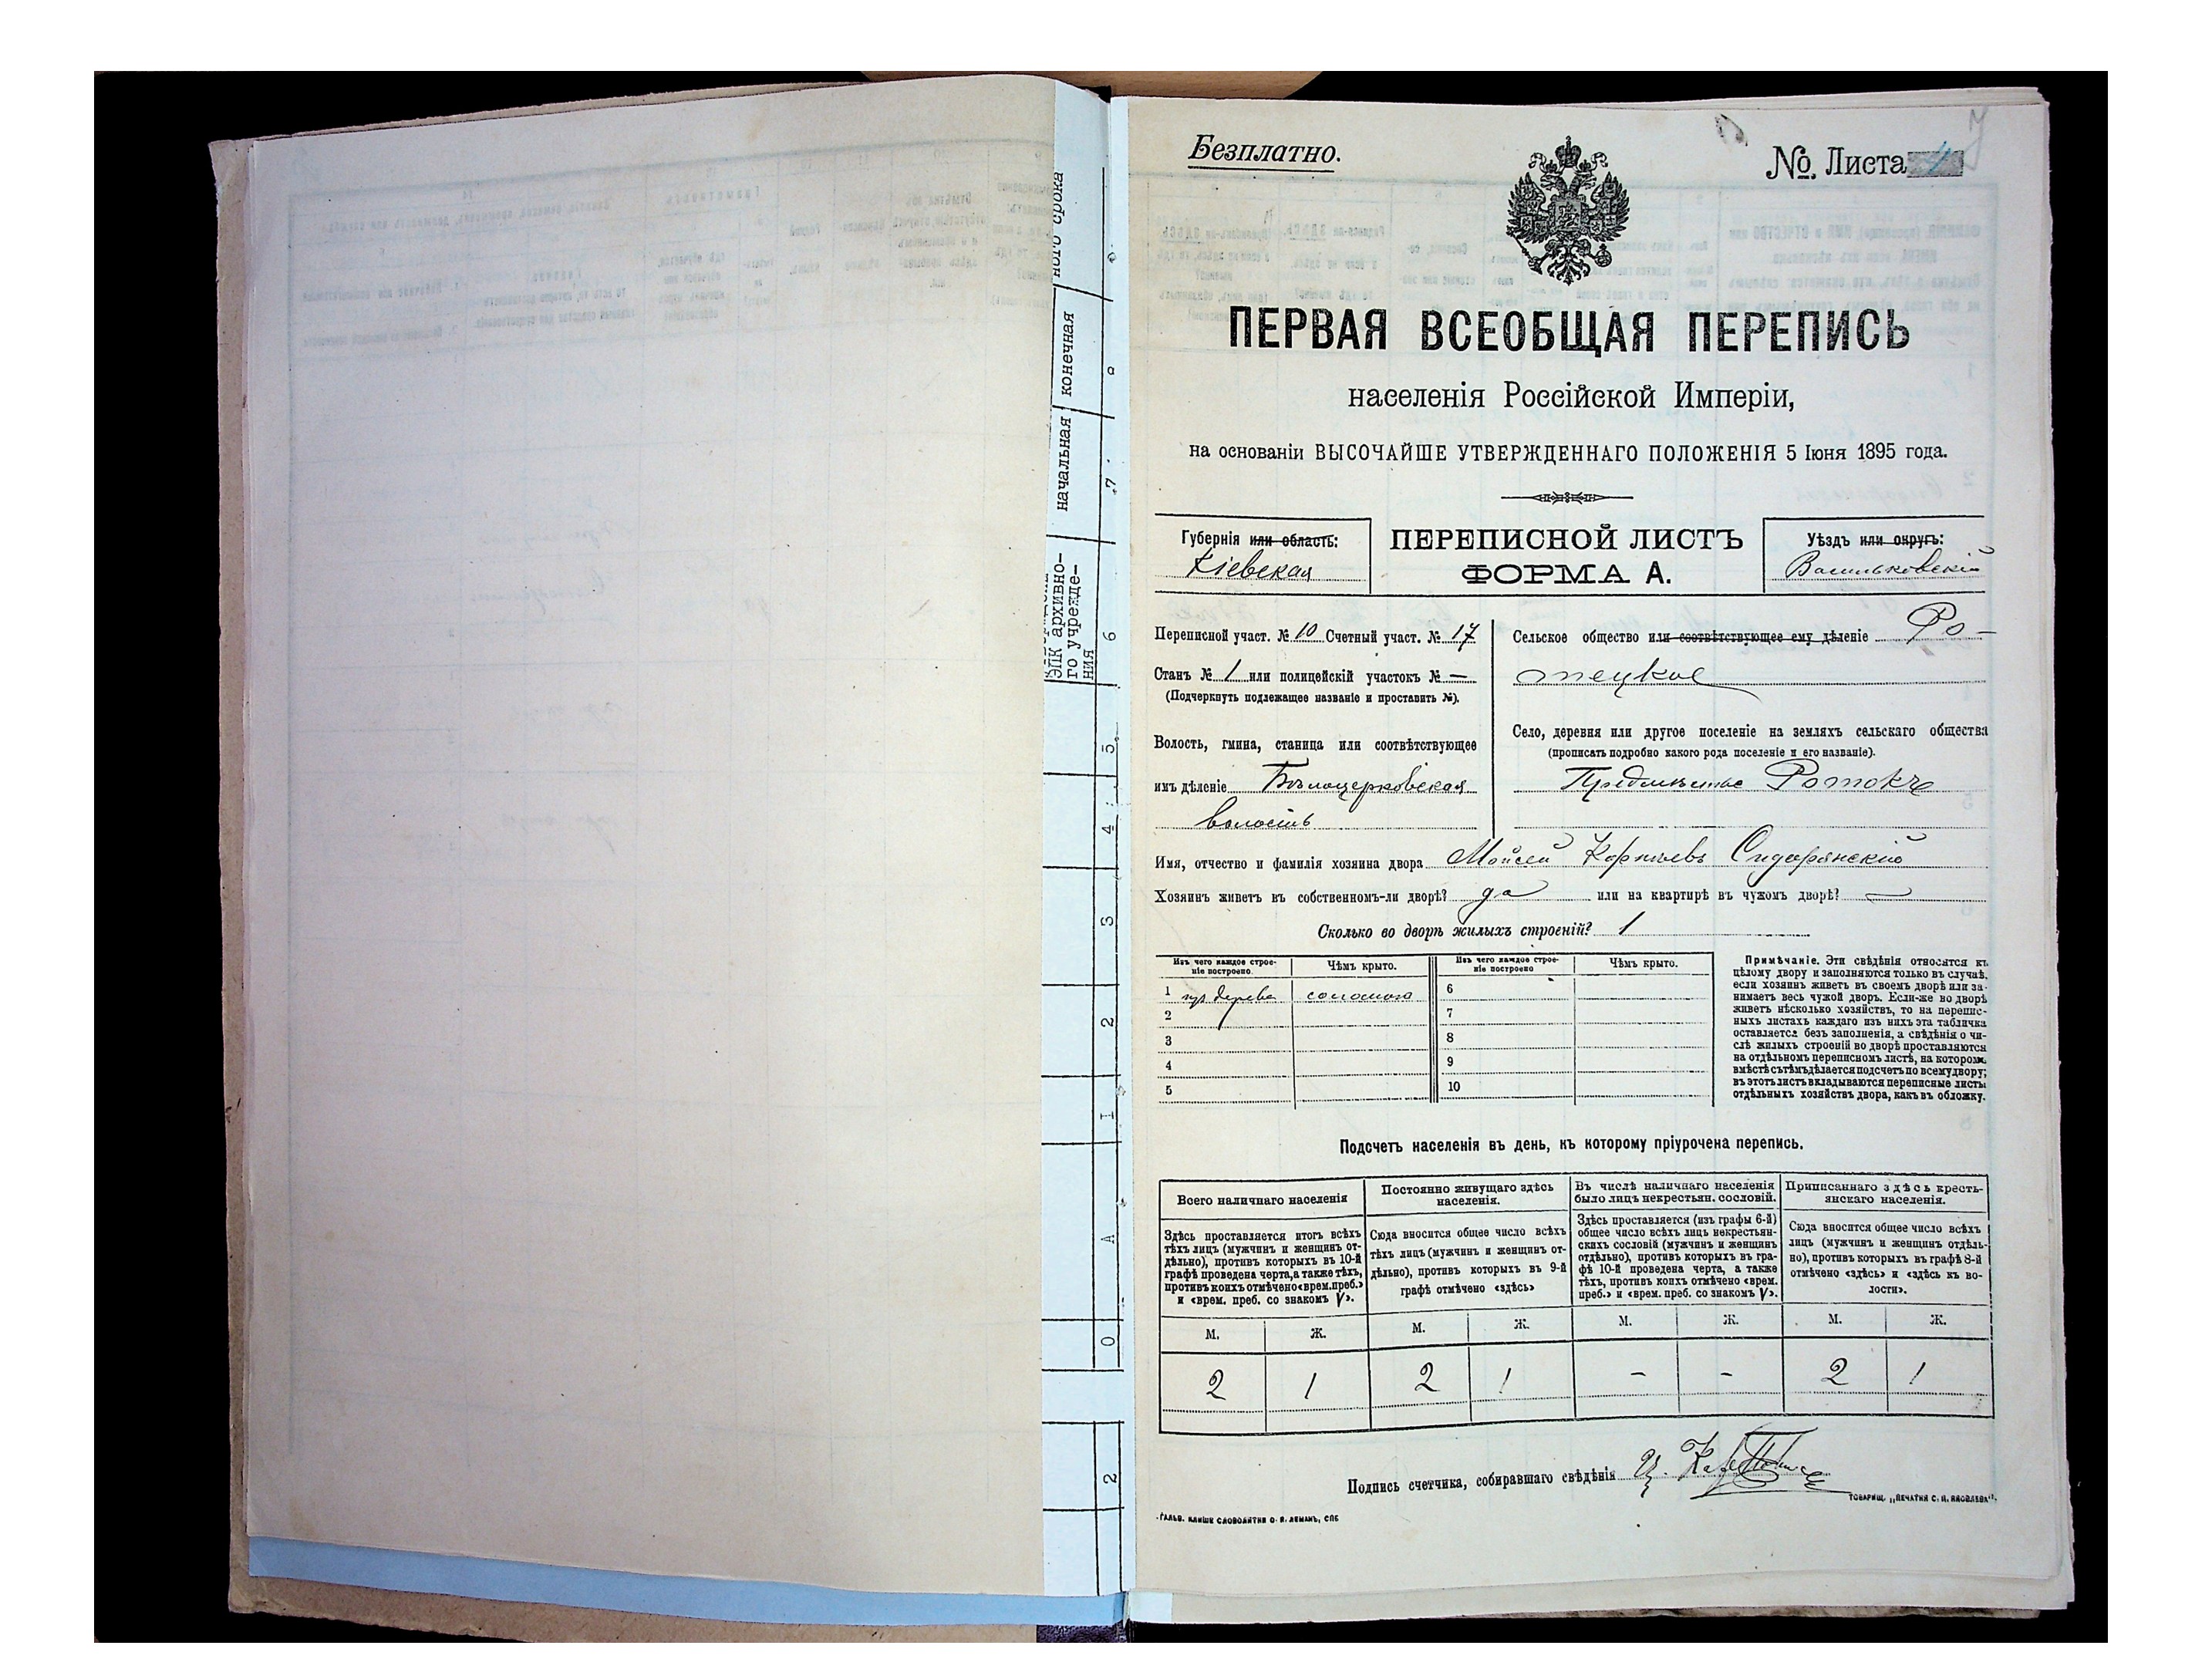 Безплатно.
№ Листа
ПЕРВАЯ ВСЕОБЩАЯ ПЕРЕПИСЬ
населенія Россійской Имперіи,
на основаніи ВЫСОЧАЙШЕ УТВЕРЖДЕННАГО ПОЛОЖЕНІЯ 5 Іюня 1895 года.
Губернія или область:
Кіевская
ПЕРЕПИСНОЙ ЛИСТЪ
ФОРМА А.
Уѣздъ или округъ:
Васильковскій
Переписной участ. № 10 Счетный участ. № 17
Станъ № 1 или полицейскій участокъ № —
(Подчеркнуть подлежащее названіе и проставить №).
Волость, гмина, станица или соотвѣтствующее
имъ дѣленіе Бѣлоцерковская
волость
Сельское общество или соотвѣтствующее ему дѣленіе Ро-
тецкое
Село, деревня или другое поселеніе на земляхъ сельскаго общества
(прописать подробно какого рода поселеніе и его названіе).
Предмѣстье Ротокъ
Имя, отчество и фамилія хозяина двора Мойсей Карпьевъ Сидорянскій
Хозяинъ живетъ въ собственномъ-ли дворѣ? да или на квартирѣ въ чужомъ дворѣ? —
Сколько во дворѣ жилыхъ строеній? 1
Изъ чего каждое строе-
ніе построено.
Чѣмъ крыто.
Изъ чего каждое строе-
ніе построено
Чѣмъ крыто.
1 изъ дерева соломою
2
3
4
5
6
7
8
9
10
Примѣчаніе. Эти свѣдѣнія относятся къ
цѣлому двору и заполняются только въ случаѣ,
если хозяинъ живетъ въ своемъ дворѣ или за-
нимаетъ весь чужой дворъ. Если-же во дворѣ
живетъ нѣсколько хозяйствъ, то на перепис-
ныхъ листахъ каждаго изъ нихъ эта табличка
оставляется безъ заполненія, а свѣдѣнія о чи-
слѣ жилыхъ строеній во дворѣ проставляются
на отдѣльномъ переписномъ листѣ, на которомъ
вмѣстѣ съ тѣмъ дѣлается подсчетъ по всему двору;
въ этотъ листъ вкладываются переписные листы
отдѣльныхъ хозяйствъ двора, какъ въ обложку.
Подсчетъ населенія въ день, къ которому пріурочена перепись.
Всего наличнаго населенія
Здѣсь проставляется итогъ всѣхъ
тѣхъ лицъ (мужчинъ и женщинъ от-
дѣльно), противъ которыхъ въ 10-й
графѣ проведена черта, а также тѣхъ,
противъ коихъ отмѣчено «врем. преб.»
и «врем. преб. со знакомъ V».
Постоянно живущаго здѣсь
населенія.
Сюда вносится общее число всѣхъ
тѣхъ лицъ (мужчинъ и женщинъ от-
дѣльно), противъ которыхъ въ 9-й
графѣ отмѣчено «здѣсь»
Въ числѣ наличнаго населенія
было лицъ некрестьян. сословій.
Здѣсь проставляется (изъ графы 6-й)
общее число всѣхъ лицъ некрестьян-
скихъ сословій (мужчинъ и женщинъ
отдѣльно), противъ которыхъ въ гра-
фѣ 10-й проведена черта, а также
тѣхъ, противъ коихъ отмѣчено «врем.
преб.» и «врем. преб. со знакомъ V».
Приписаннаго здѣсь кресть-
янскаго населенія.
Сюда вносится общее число всѣхъ
лицъ (мужчинъ и женщинъ отдѣль-
но), противъ которыхъ въ графѣ 8-й
отмѣчено «здѣсь» и «здѣсь къ во-
лости».
М. Ж. М. Ж. М. Ж. М. Ж.
2 1 2 1 - - 2 1
Подпись счетчика, собиравшаго свѣдѣнія
ТОВАРИЩ. „ПЕЧАТНЯ С. П. ЯКОВЛЕВА“.
ГАЛЬВ. КЛИШЕ СЛОВОЛИТНИ О. И. ЛЕМАНЪ, СПБ
ного срока
конечная
начальная
ЭПК архивно-
го учрежде-
ния
7
6
5
4
3
2
I
А
0
2